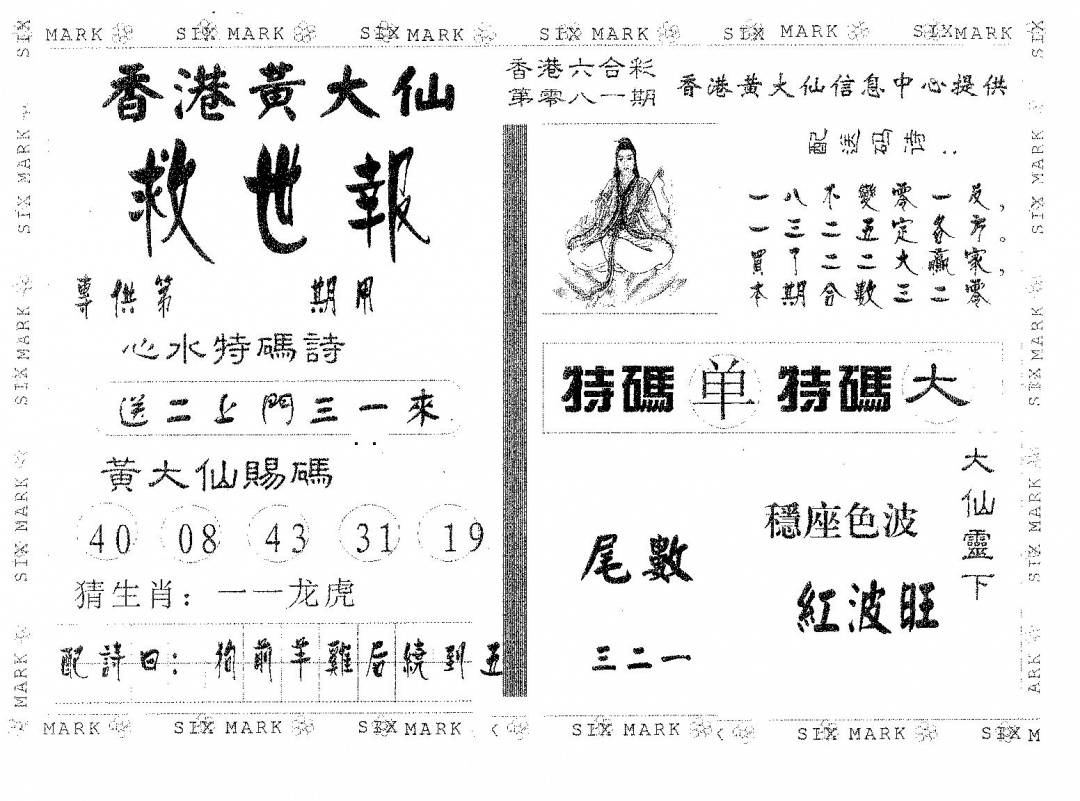 SIX MARK SIX MARK SIX MARK SIX MARK SIX MARK SIX MARK
香港黃大仙
救世報
專供第 期用
心水特碼詩
送二上門三一來
黃大仙賜碼
40 08 43 31 19
猜生肖：一一龙虎
配詩曰：狗前羊雞后繞到五
香港六合彩
第零八一期
香港黃大仙信息中心提供
配送码诗..
一八不變零一反，
一三二五定各方。
買了二二大贏家，
本期合數三二零
特碼单特碼大
大仙靈下
穩座色波
紅波旺
尾數
三二一
SIX MARK
SIX MARK
SIX MARK
SIX MARK
SIX MARK
SIX MARK
SIX MARK
ARK
MARK SIX MARK SIX MARK SIX MARK SIX MARK SIX M